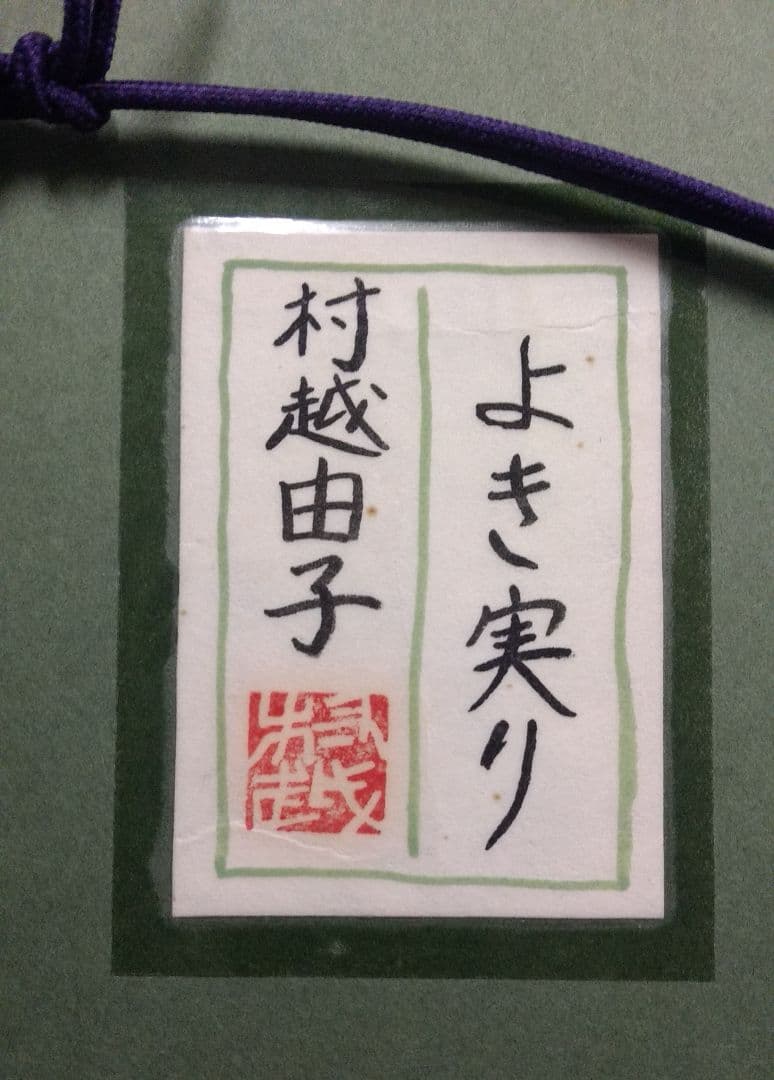 よき実り
村越由子
村越